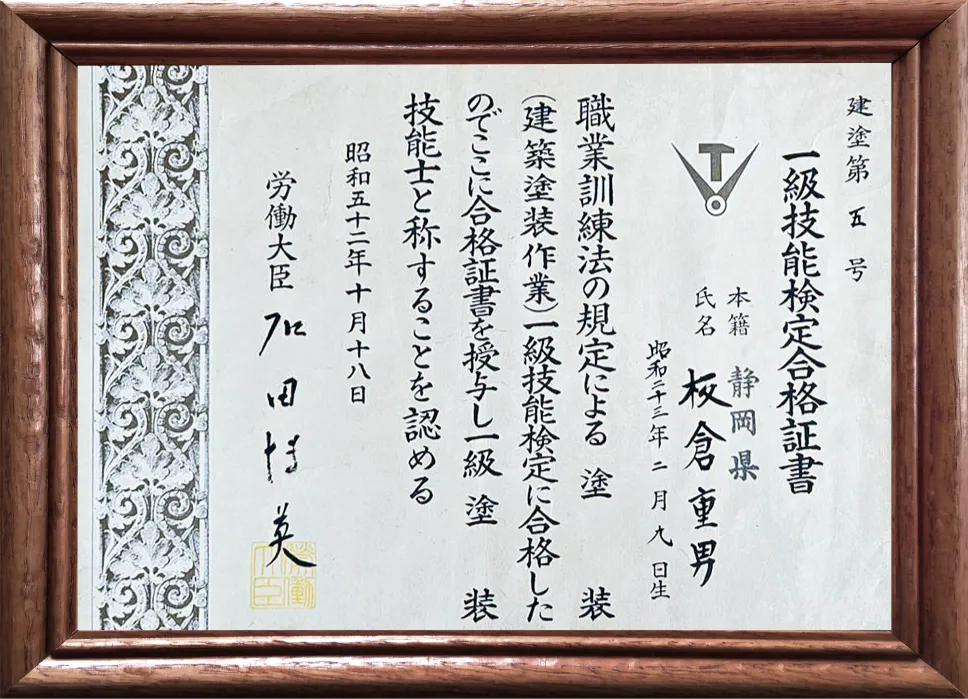 建塗第五号
一級技能検定合格証書
本籍 静岡県
氏名 板倉重男
昭和二十三年二月九日生
職業訓練法の規定による 塗装
(建築塗装作業)一級技能検定に合格した
のでここに合格証書を授与し一級 塗装
技能士と称することを認める
昭和五十二年十月十八日
労働大臣 石田博英
労働大臣